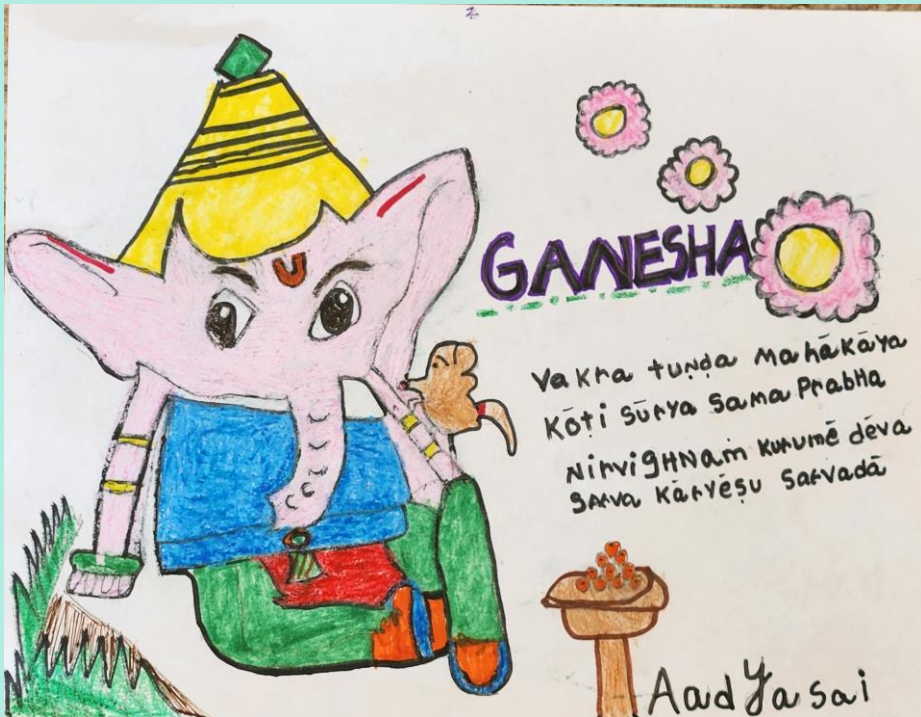 GANESHA
Vakra tuṇḍa Mahākāya
Kōṭi sūrya Sama Prabha
NirvigHNaṁ kurumē dēva
Sarva Kāryēṣu Sarvadā
Aadya sai